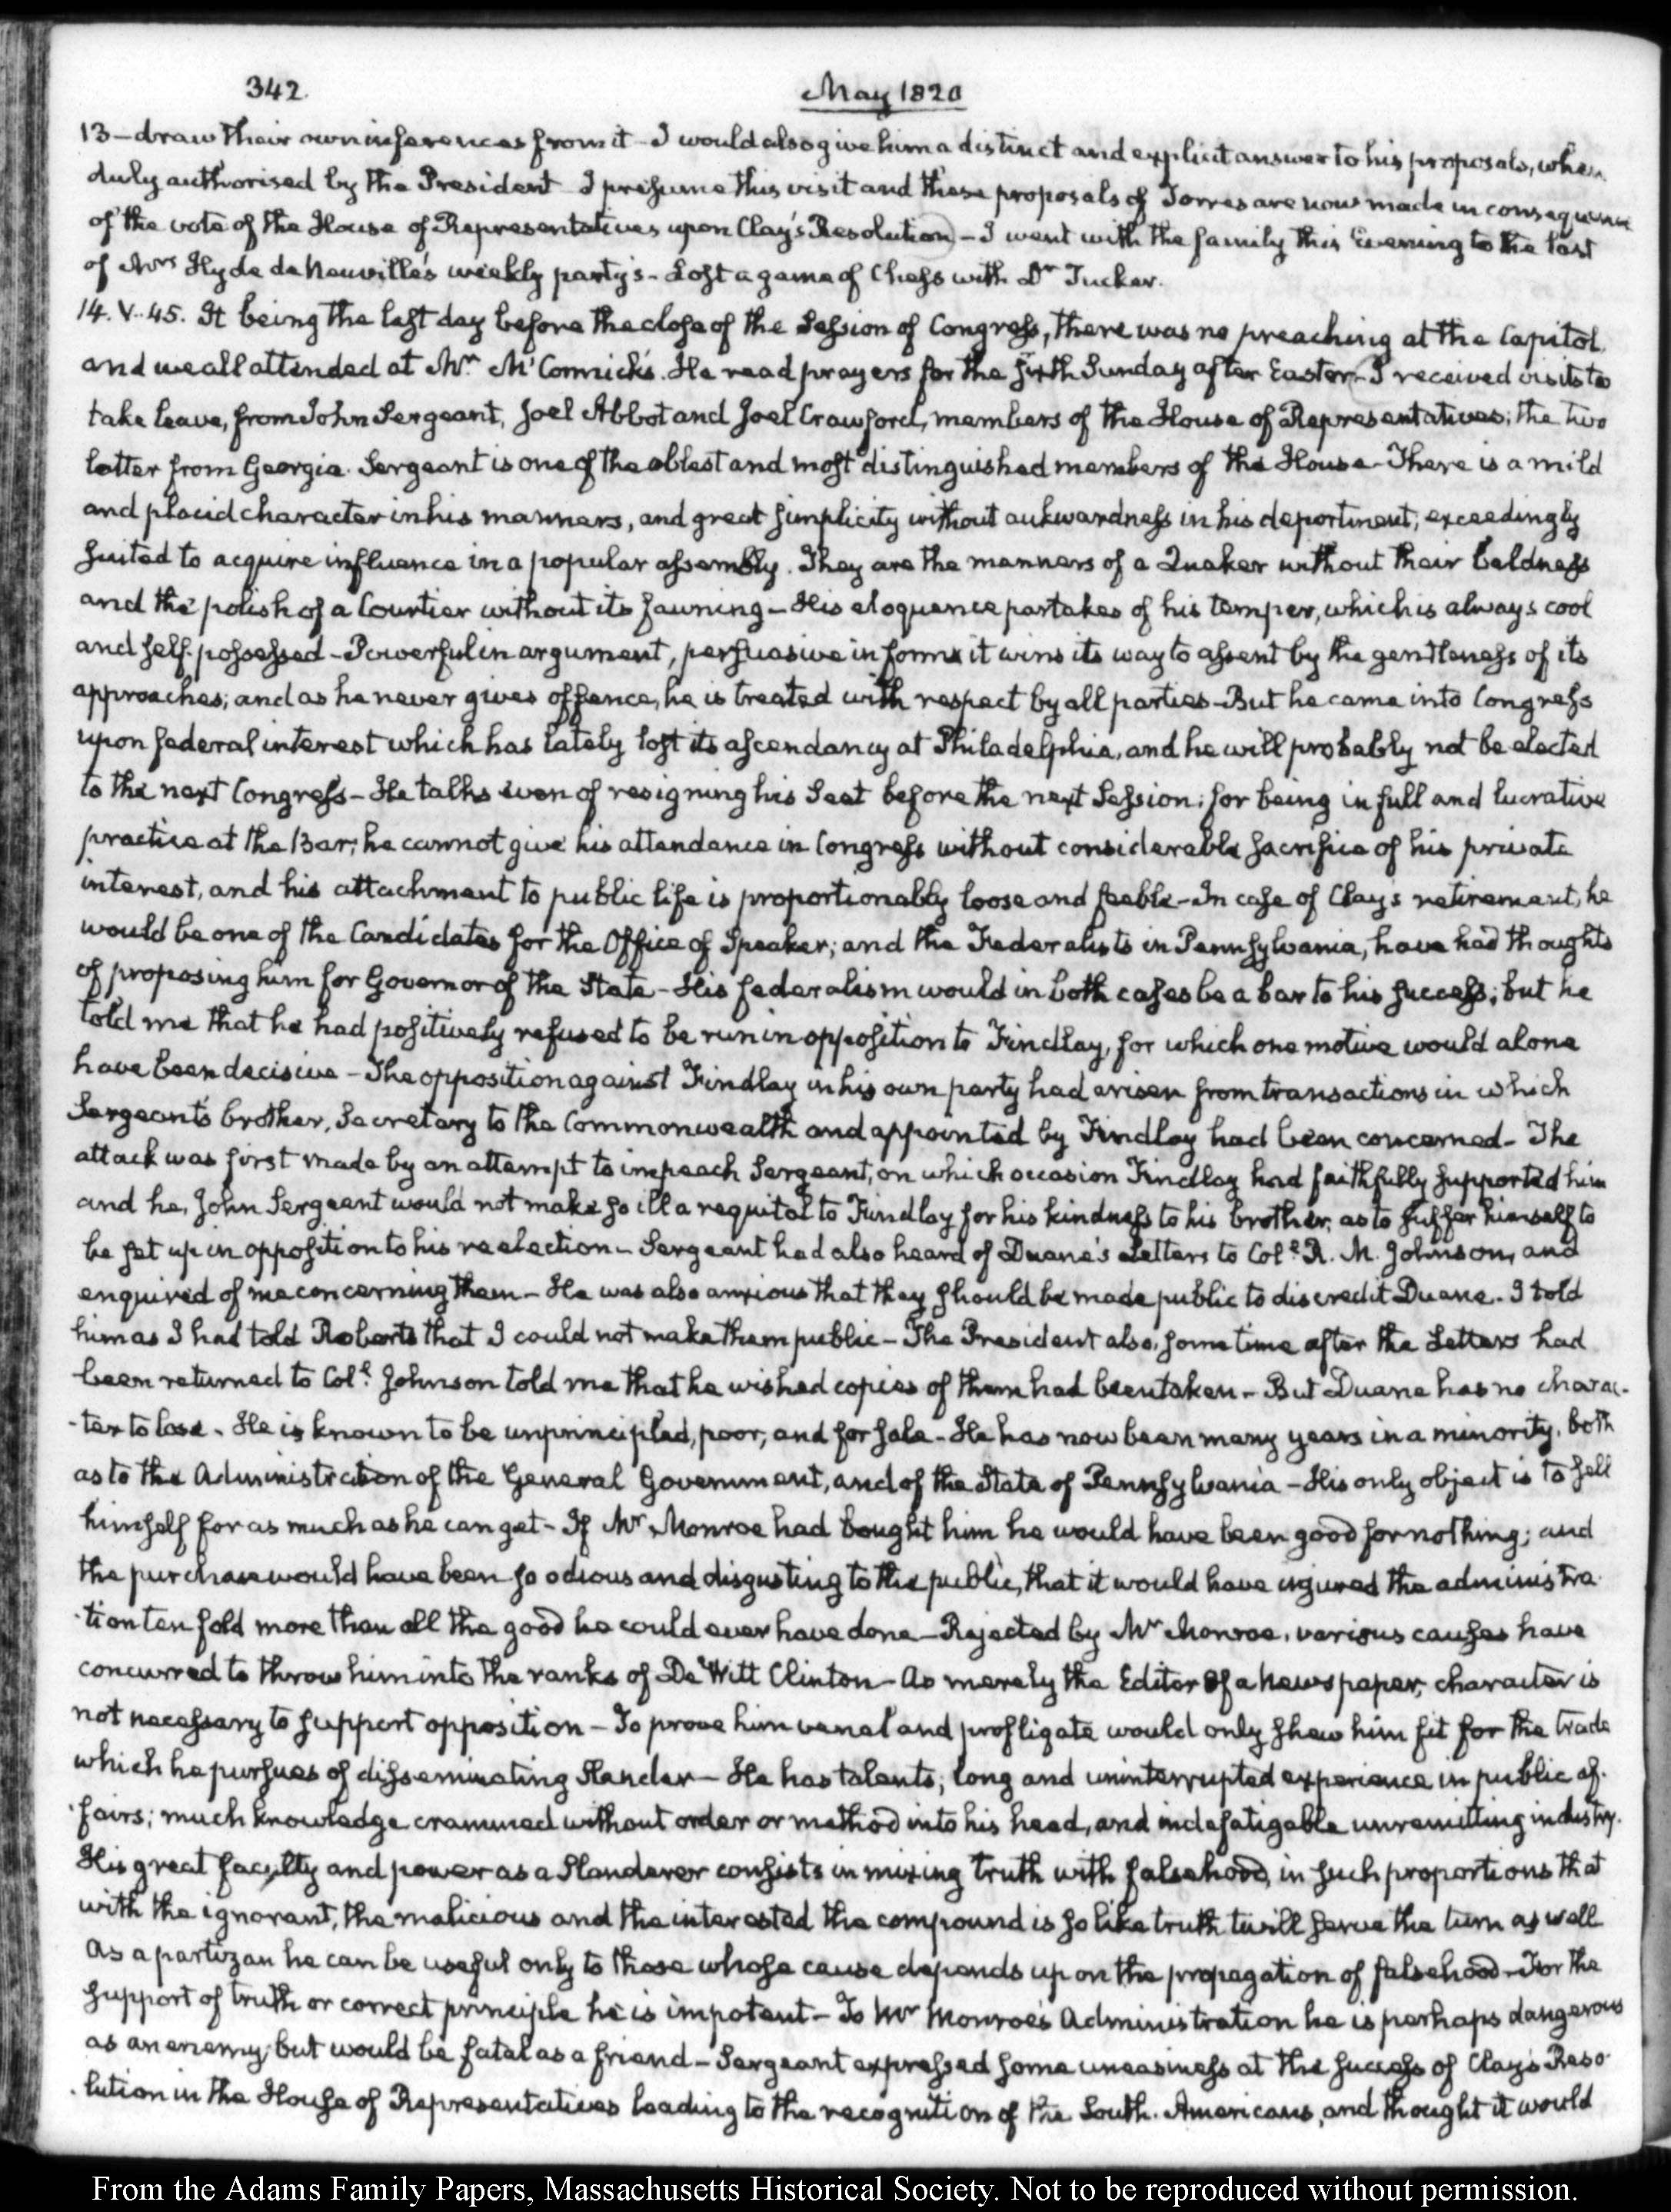 342.
May 1820
13 – draw their own inferences from it – I would also give him a distinct and explicit answer to his proposals, when
duly authorised by the President – I presume this visit and these proposals of Torres are now made in consequence
of the vote of the House of Representatives upon Clay's Resolution) – I went with the family this Evening to the last
of Mrs Hyde de Neuville's weekly party's – Lost a game of Chess with Dr Tucker.
14. V. 45. It being the last day before the close of the Session of Congress, there was no preaching at the Capitol,
and we all attended at Mr McCormick's. He read prayers for the fifth Sunday after Easter – I received visits to
take leave, from John Sergeant, Joel Abbot and Joel Crawford, members of the House of Representatives; the two
latter from Georgia. Sergeant is one of the ablest and most distinguished members of the House – There is a mild
and placid character in his manners, and great simplicity without aukwardness in his deportment; exceedingly
suited to acquire influence in a popular assembly. They are the manners of a Quaker without their baldness
and the polish of a Courtier without its fawning – His eloquence partakes of his temper, which is always cool
and self-possessed – Powerful in argument, persuasive in form it wins its way to assent by the gentleness of its
approaches; and as he never gives offence, he is treated with respect by all parties – But he came into Congress
upon federal interest which has lately lost its ascendancy at Philadelphia, and he will probably not be elected
to the next Congress – He talks even of resigning his Seat before the next Session; for being in full and lucrative
practice at the Bar; he cannot give his attendance in Congress without considerable sacrifice of his private
interest, and his attachment to public life is proportionably loose and feeble – In case of Clay's retirement, he
would be one of the Candidates for the Office of Speaker; and the Federalists in Pennsylvania, have had thoughts
of proposing him for Governor of the State – His federalism would in both cases be a bar to his success; but he
told me that he had positively refused to be run in opposition to Findlay, for which one motive would alone
have been decisive – The opposition against Findlay in his own party had arisen from transactions in which
Sergeant's brother, Secretary to the Commonwealth and appointed by Findlay had been concerned – The
attack was first made by an attempt to impeach Sergeant, on which occasion Findlay had faithfully supported him
and he, John Sergeant would not make so ill a requital to Findlay for his kindness to his brother, as to suffer himself to
be set up in opposition to his reelection – Sergeant had also heard of Duane's Letters to Coll. R. M. Johnson, and
enquired of me concerning them – He was also anxious that they should be made public to discredit Duane. I told
him as I had told Roberts that I could not make them public – The President also, sometime after the Letters had
been returned to Coll. Johnson told me that he wished copies of them had been taken – But Duane has no charac-
-ter to lose. He is known to be unprincipled, poor, and for sale – He has now been many years in a minority, both
as to the Administration of the General Government, and of the State of Pennsylvania – His only object is to sell
himself for as much as he can get – If Mr Monroe had bought him he would have been good for nothing; and
the purchase would have been so odious and disgusting to the public, that it would have injured the administra-
-tion ten fold more than all the good he could ever have done – Rejected by Mr Monroe, various causes have
concurred to throw him into the ranks of De Witt Clinton – As merely the Editor of a Newspaper, character is
not necessary to support opposition – To prove him venal and profligate would only shew him fit for the trade
which he pursues of disseminating Slander – He has talents; long and uninterrupted experience in public af-
-fairs; much knowledge crammed without order or method into his head, and indefatigable unremitting industry.
His great faculty and power as a Slanderer consists in mixing truth with falsehood, in such proportions that
with the ignorant, the malicious and the interested the compound is so like truth twill serve the turn as well
As a partizan he can be useful only to those whose cause depends upon the propagation of falsehood – For the
support of truth or correct principle he is impotent – To Mr Monroe's Administration he is perhaps dangerous
as an enemy, but would be fatal as a friend – Sergeant expressed some uneasiness at the success of Clay's Reso-
-lution in the House of Representatives leading to the recognition of the South-Americans, and thought it would
From the Adams Family Papers, Massachusetts Historical Society. Not to be reproduced without permission.